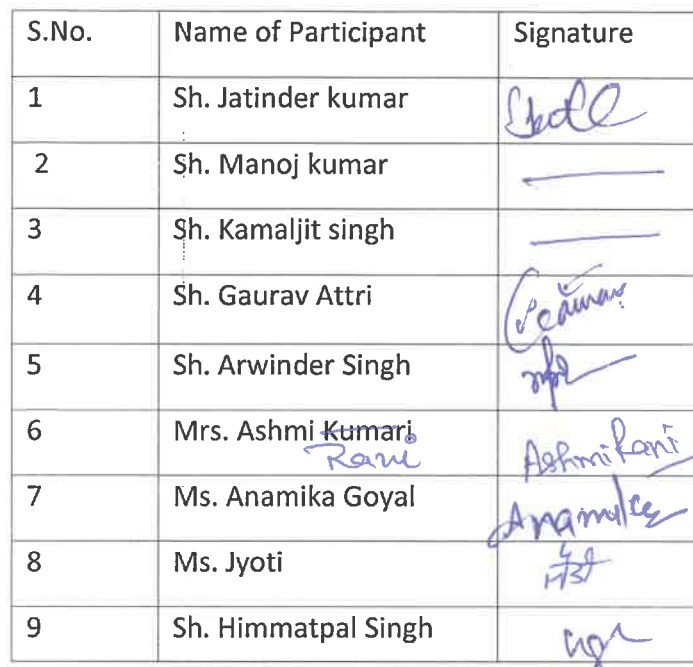 S.No. Name of Participant Signature
1 Sh. Jatinder kumar
2 Sh. Manoj kumar
3 Sh. Kamaljit singh
4 Sh. Gaurav Attri
5 Sh. Arwinder Singh
6 Mrs. Ashmi Kumari
Rani Ashmi Rani
7 Ms. Anamika Goyal Anamika
8 Ms. Jyoti
9 Sh. Himmatpal Singh